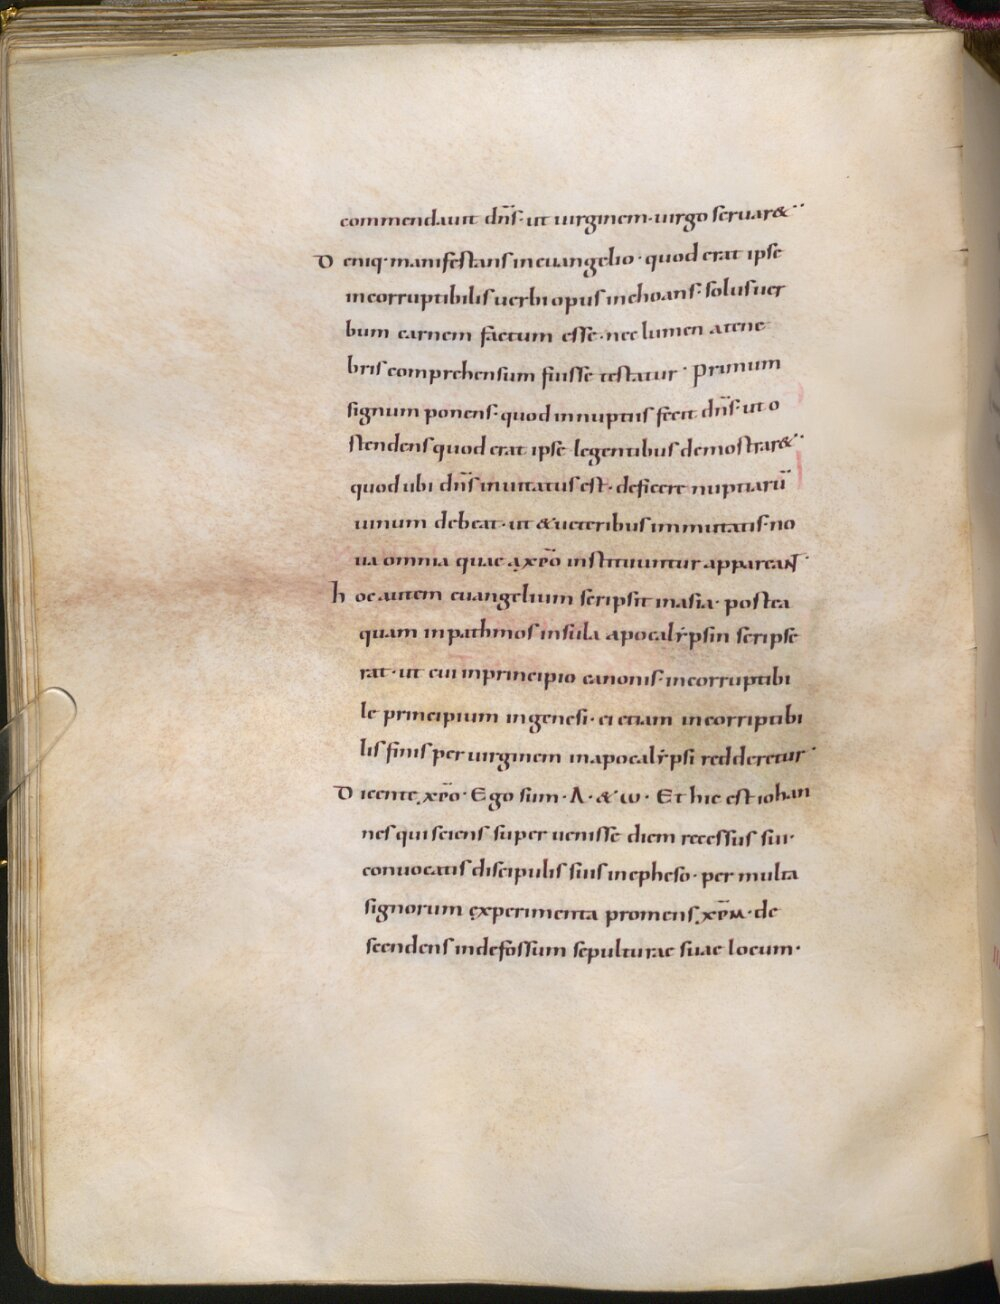 commendauit dn̄s· ut uirginem· uirgo seruar&··
D eniq· manifestans in euangelio· quod erat ipse
incorruptibilis uerbi opus inchoans· solus uer
bum carnem factum esse· nec lumen a tene
bris comprehensum fuisse testatur· Primum
signum ponens· quod in nuptiis fecit dn̄s· ut o
stendens quod erat ipse legentibus demostrar&··
quod ubi dn̄s inuitatus est· deficere nuptiarū
uinum debeat· ut & ueteribus immutatis· no
ua omnia quae a xp̄o instituuntur appareant·
h oc autem euangelium scripsit in asia· postea
quam in pathmos insula apocalẏpsin scripse
rat· ut cui in principio canonis· incorruptibi
le principium in genesi· ei etiam incorriptibi
lis finis per uirginem in apocalẏpsi redderetur·
D icente xp̄o· Ego sum· Λ· & ω· Et hic est iohan
nes qui sciens super uenisse diem recessus sui·
conuocatis discipulis suis in epheso· per multa
signorum experimenta promens xp̄m· de
scendens in defossum sepulturae suae locum·